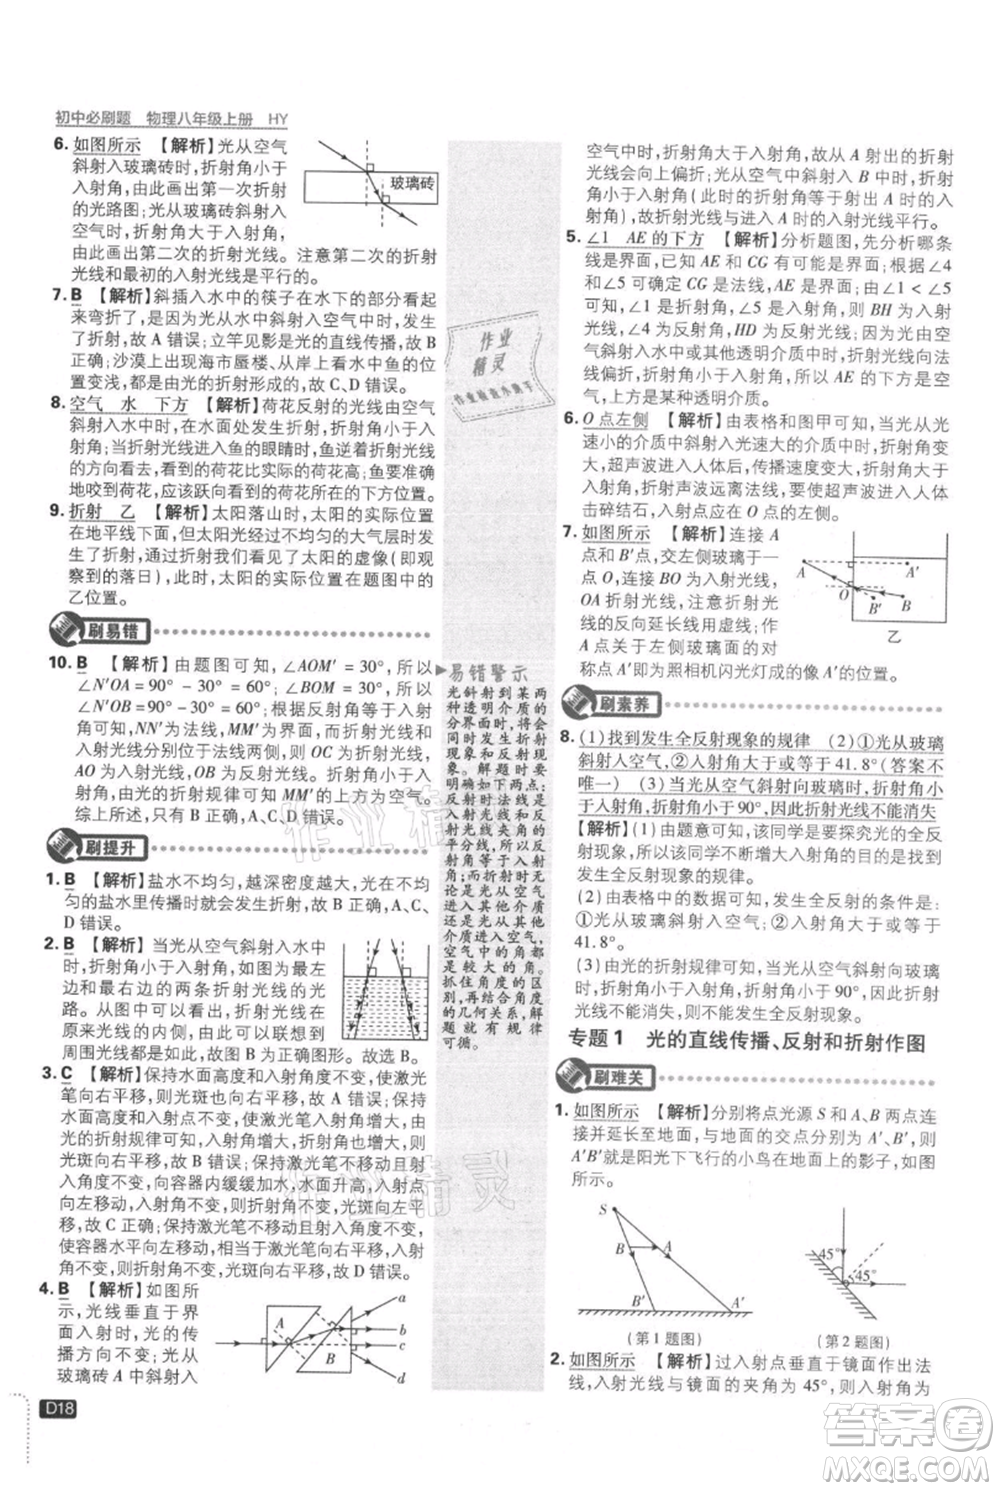 初中必刷题 物理八年级上册 HY
6. 如图所示 【解析】光从空气
斜射入玻璃砖时,折射角小于
入射角,由此画出第一次折射
的光路图;光从玻璃砖斜射入
空气时,折射角大于入射角,由此画出第二次折射的光
路图。注意图中第二次折射的入射角等于第一次折射的
玻璃砖
7. B 【解析】斜插入水中的筷子在水下的部分看起
来弯折了,是由于光从水中斜射入空气中时发生了
折射,故 A 错误;立竿见影是光的直线传播形成的,故
B 正确;沙漠上出现海市蜃楼、从岸上看水中的鱼位置
变浅,都是光的折射形成的,故 C、D 错误。
8. 空气 水 下方 【解析】荷花反射的光线由空气
斜射入水中时,在水面处发生折射,折射角小于入射
角,当折射光线进入鱼的眼睛时,鱼逆着折射光线看
到的荷花位置比实际的荷花位置高;鱼要准确
地咬到荷花,应该跃向看到的荷花的下方位置。
9. 折射 乙 【解析】太阳落山时,太阳实际的位置
在地平线下方,太阳光经过不均匀的大气层时
发生了折射,通过折射我们看到了太阳的虚像(即观
察到的落日),太阳的实际位置在题图中的
乙位置。
刷易错
10. B 【解析】由题图可知,∠AOM′ = 30°,所以
∠N′OA = 90° - 30° = 60°,∠BOM = 30°,所以
∠N′OB = 90° - 30° = 60°,根据入射角等于反射角
可知,NN′为法线,MM′为界面,而折射光线与
入射光线分别位于法线两侧,则 OC 为折射光线,
AO 为入射光线,OB 为反射光线。
由光的折射规律可知 MM′的左边是玻璃。
综上所述,只有 B 正确,A、C、D 错误。
刷提升
1. B 【解析】盐水不均匀,越深密度越大,光在不均
匀的盐水里传播时就会发生折射,故 B 正确,A、C、
D 错误。
2. B 【解析】当光从空气斜射入水中
时,折射角小于入射角,据此画出进入
水中的两条折射光线的光
路。将水中折射光线与
原来光线比较,折射光线在
原来光线的内侧,由此可以联想到
实际的情形图应为 B 图。故选 B。
3. C 【解析】保持水面高度和入射角不变,使激光
笔向左平移,则光斑向左移动,故 A 错误;保持水
面高度不变,使入射角增大,折射角也增大,
由光的折射规律可知,入射角增大,折射角增大,光
斑向左平移,故 B 错误;保持激光笔位置和
入射角度不变,向容器内缓缓加水,水面升高,光斑
向左移动,故 C 正确;保持激光笔位置和入射角度不变,
使容器水平向左移动,光斑位置不变,故 D 错误。
4. B 【解析】如图
所示,光线垂直于界
面入射时,光的传
播方向不变;光从
玻璃砖 A 中斜射入
A
B
a
b
c
d
D18
易错警示
光斜射到某两
种透明介质的
分界面时,会
同时发生折射
现象和反射现
象。解题时要
注意如下两点:
反射时法线是
反射光线与入
射光线夹角的
角平分线,反
射角等于入射
角;折射时无论
是光从空气
进入其他介质
还是光从其他
介质进入空气,
空气中的角都
是较大的角。
抓住角度之间
的几何关系,解
题就有规律
可循。
空气中时,折射角大于入射角,故从 A 射出的折射
光线会向上偏折;光从空气中斜射入 B 时,折射角小于入
射角(此时的折射角等于光从 A 射出时的入
射角),故折射光线与入射光线平行。
5. ∠1 AE 的下方 【解析】分析题图,先分析哪条
线是界面,可知 AE 和 CG 有可能是界面,由 ∠4
= ∠5 可知 CG 是法线,AE 是界面;由 ∠1 < ∠5
可知,∠4 是入射角,∠5 是反射角,所以 BH 为入射光
线,OF 为反射光线,HD 为折射光线;因为光由空
气斜射入水中或其他透明介质中时,折射光线向法
线偏折,折射角小于入射角,所以 AE 的下方是空
气,上方是某种透明介质。
6. O 点左侧 【解析】由表格和图甲可知,当光从光
速小的介质中斜射入光速大的介质中时,折射角
大于入射角。超声波进入人体时速度变大,折射角
增大,折射声波远离法线,要使超声波进入人体
击碎结石,入射点应在 O 点的左侧。
7. 如图所示 【解析】连接 A
点和 B′点,交左侧玻璃于一
点 O,连接 BO 为入射光线,
OA 为折射光线,注意折射
光线的方向是由水中射向空
气。A 点关于左侧玻璃的对
称点 A′即为照相机闪光灯成的像 A′的位置。
A
A′
O
B′
B
乙
刷素养
8. (1)找到发生全反射现象的规律 (2)①光从玻璃
斜射入空气;②入射角大于或等于 41.8°(答案不
唯一) (3)当光从空气斜射向玻璃时,折射角小
于入射角,入射角小于 90°,因此折射光线不能消失
【解析】(1)由题意可知,该同学是要探究光的全反
射现象,所以该同学不断增大入射角的目的是找到
发生全反射现象的规律。
(2)由表格中的数据可知,发生全反射的条件是:
①光从玻璃斜射入空气;②入射角大于或等于
41.8°。
(3)由光的折射规律可知,当光从空气斜射向玻璃
时,折射角小于入射角,入射角小于 90°,因此折射
光线不能消失,不能发生全反射现象。
专题 1 光的直线传播、反射和折射作图
刷难关
1. 如图所示 【解析】分别将点光源 S 和 A、B 两点连
接并延长至地面,与地面的交点分别为 A′、B′,则
A′B′是阳光下飞行的小鸟在地面上的影子,如图
所示。
S
B
A
B′
A′
(第 1 题图)
45°
45°
(第 2 题图)
2. 如图所示 【解析】过入射点垂直于镜面作出法
线,入射光线与镜面的夹角为 45°,则入射角为
作业精灵
答案圈
MXQE.COM